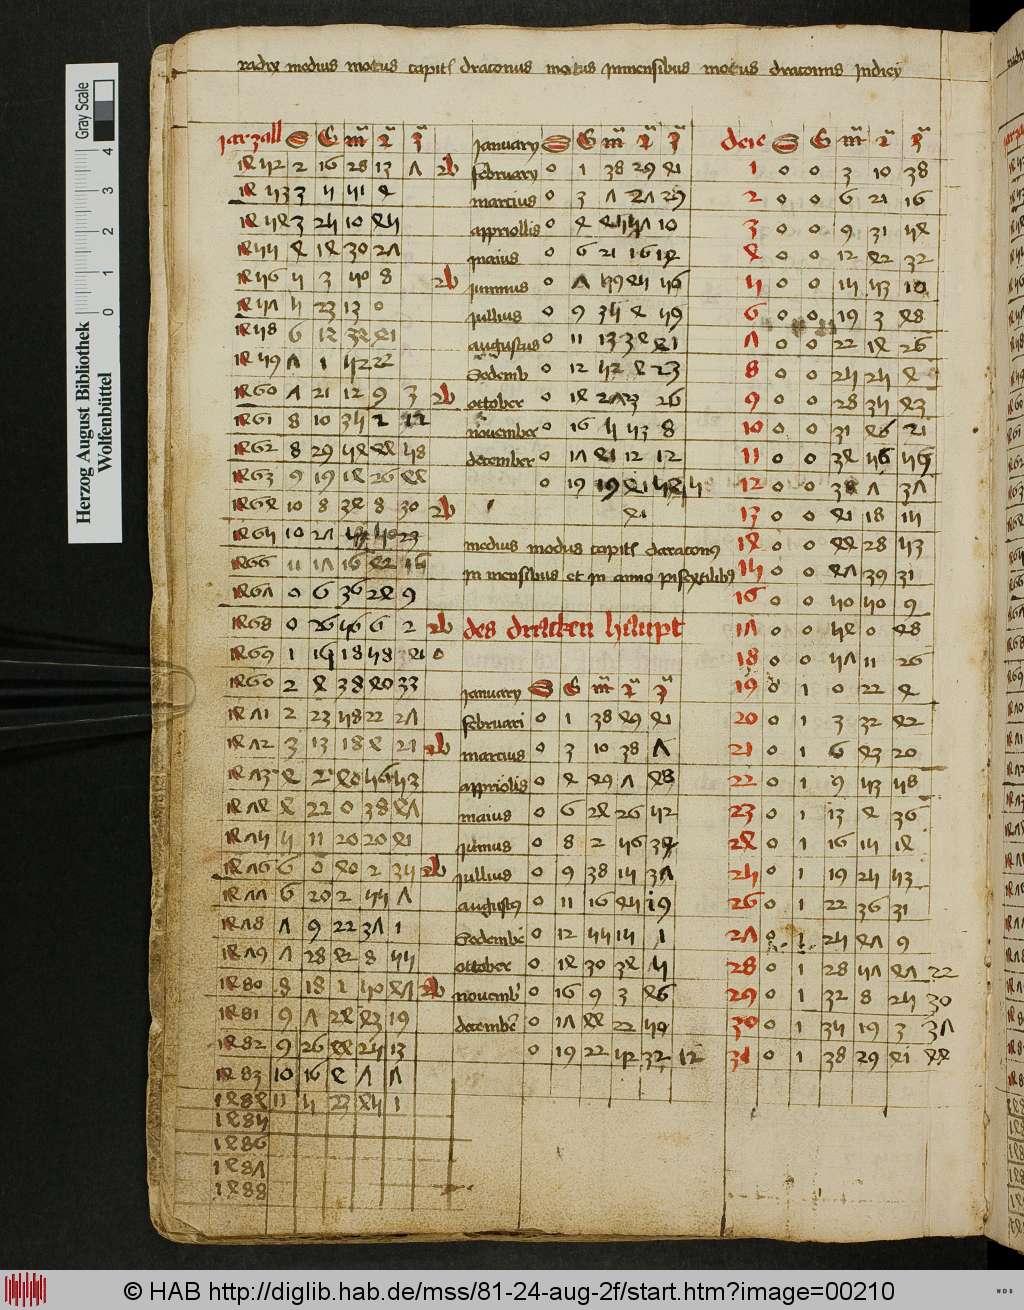 radix medius motus capitis draconus motus in mensibus motus draconus in diey
jarzall S G m 2 3
1452 2 16 28 13 7 2b
1453 3 5 51 4
1454 3 25 10 45
1455 4 14 30 27
1456 5 3 50 8 2b
1457 5 23 13 0
1458 6 12 34 41
1459 7 1 52 22
1460 7 21 12 9 3 2b
1461 8 10 35 2 12
1462 8 29 54 44 58
1463 9 19 14 26 44
1464 10 8 34 8 30 2b
1465 10 27
1466 11 17 16 42 16
1467 0 6 36 24 9
1468 0 26 56 6 2 2b
1469 1 16 18 58
1460 2 4 38 40 33
1471 2 23 58 22 27
1472 3 13 18 4 21 2b
1473 4 2 40 56 53
1474 4 22 0 38 47
1475 5 11 20 20 41
1476 6 0 40 2 35 2b
1477 6 20 2 55 7
1478 7 9 22 37 1
1479 7 28 42 8 55
1480 8 18 1 50 47 2b
1481 9 7 24 43 19
1482 9 26 44 25 13
1483 10 16 4 7 7
1484 11 5 23 45 1
1485
1486
1487
1488
january S G m 2 3
february 0 1 38 29 41
marcius 0 3 7 27 29
appriollis 0 4 45 57 10
maius 0 6 21 16 14
junnius 0 7 59 45 56
jullius 0 9 35 4 59
augustus 0 11 13 34 41
Sedemb 0 12 52 4 23
ottober 0 14 27 23 26
november 0 16 5 53 8
december 0 17 41 12 12
0 19 19 41 54 5
41
medius modus capitis daraconus
in mensibus et in anno pisextilibus
des dracken haupt
january S G m 2 3
februari 0 1 38 49 41
marcius 0 3 10 38 7
appriolis 0 4 49 7 48
maius 0 6 24 26 52
junius 0 8 2 56 34
jullius 0 9 38 15 37
augustus 0 11 16 45 19
Sedember 0 12 55 15 1
ottober 0 14 30 34 5
novemb 0 16 9 3 46
december 0 17 44 22 59
0 19 22 52 32 12
deie S G m 2 3
1 0 0 3 10 38
2 0 0 6 21 16
3 0 0 9 31 54
4 0 0 12 42 32
5 0 0 15 53 10
6 0 0 19 3 48
7 0 0 22 14 26
8 0 0 25 25 4
9 0 0 28 35 43
10 0 0 31 46 21
11 0 0 34 56 59
12 0 0 38 7 37
13 0 0 41 18 15
14 0 0 44 28 53
15 0 0 47 39 31
16 0 0 50 50 9
17 0 0 54 0 48
18 0 0 57 11 26
19 0 1 0 22 4
20 0 1 3 32 42
21 0 1 6 43 20
22 0 1 9 53 58
23 0 1 13 4 36
24 0 1 16 15 14
25 0 1 19 25 53
26 0 1 22 36 31
27 0 1 25 47 9
28 0 1 28 57 47 22
29 0 1 32 8 25 30
30 0 1 35 19 3 37
31 0 1 38 29 41 44
Herzog August Bibliothek
Wolfenbüttel
Gray Scale
0 1 2 3 4
© HAB http://diglib.hab.de/mss/81-24-aug-2f/start.htm?image=00210